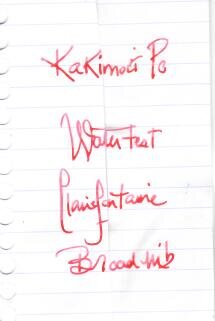 Kakimori Po
Water test
Clairefontaine
Broad nib